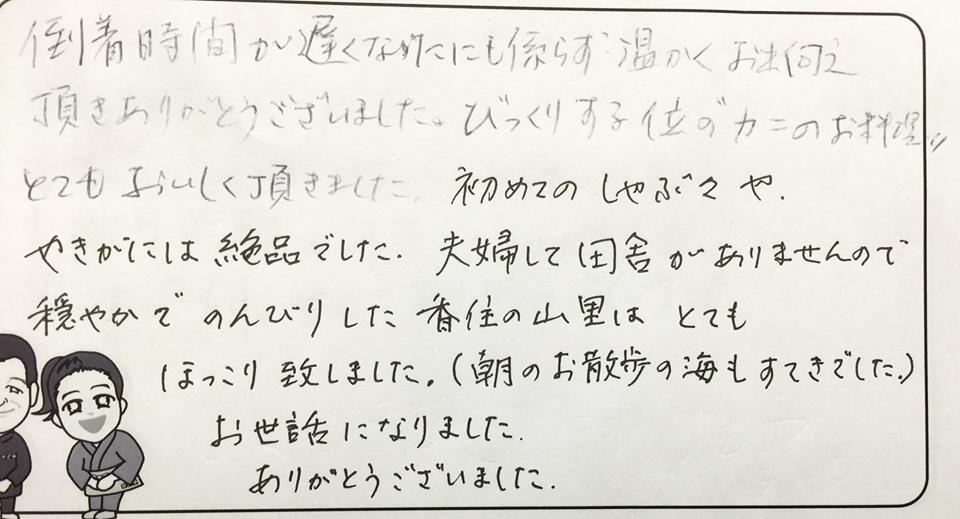 到着時間が遅くなったにも係らず温かくお出向え
頂きありがとうございました。びっくりする位のカニのお料理〃
とてもおいしく頂きました。初めてのしゃぶ々や.
やきがには絶品でした. 夫婦して田舎がありませんので
穏やかでのんびりした香住の山里はとても
ほっこり致しました。(朝のお散歩の海もすてきでした。)
お世話になりました.
ありがとうございました.